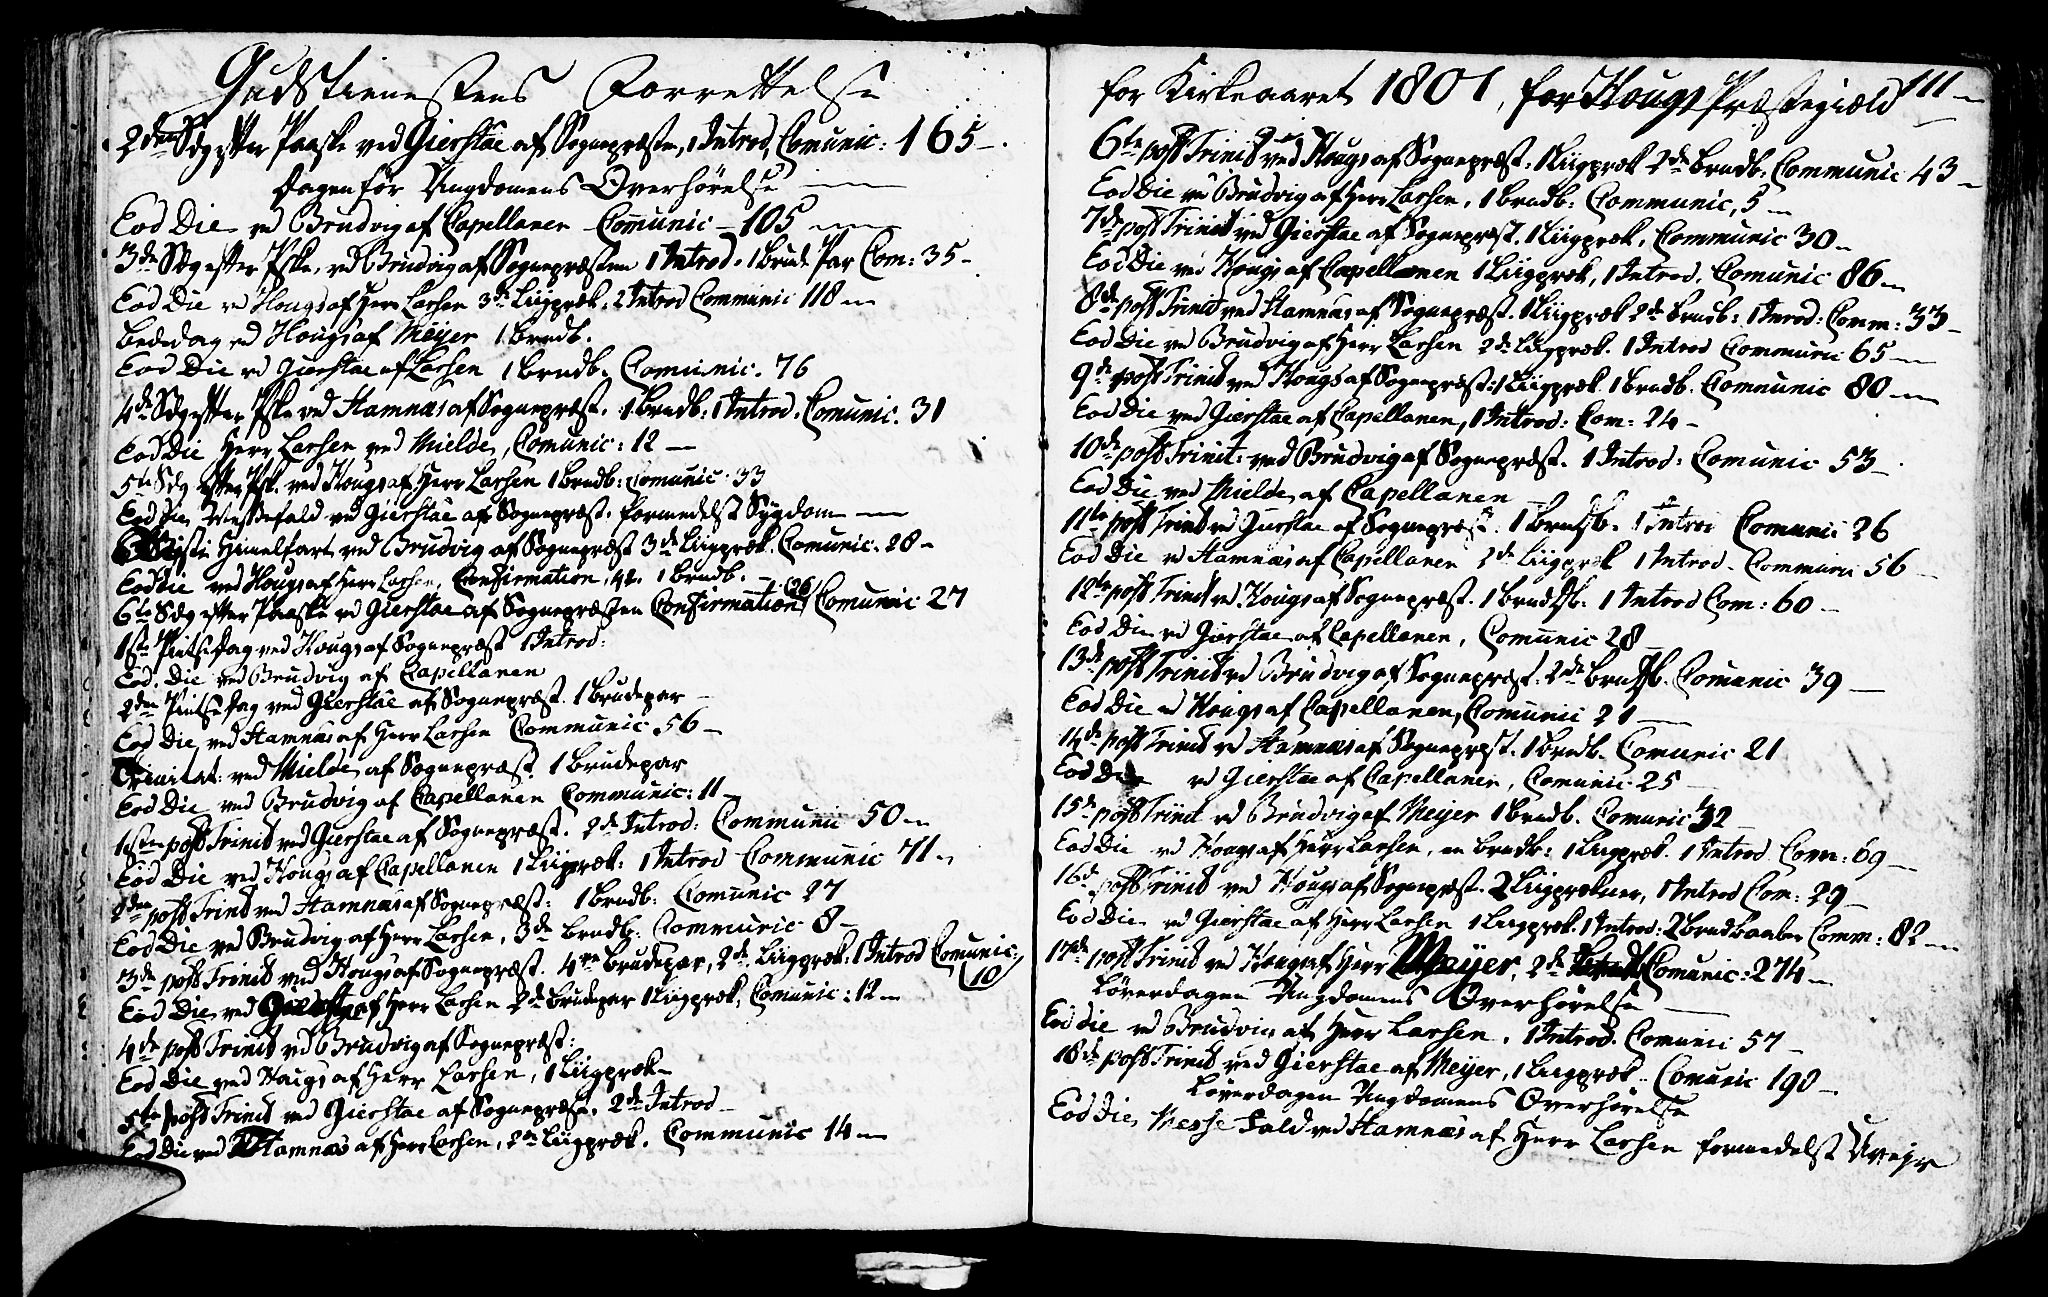 Gudstienestens Forrettelse
2den Sdg efter Paaske ved Gierstae af Sognepræsten, 1 Introd, Comunic: 165 -
Dagen før Ungdomens Overhørelse
Eod Die ved Brudvig af Capellanen Communic - 105
3de Sdg efter Pske. ved Brudvig af Sognepræsten 1 Introd. 1 Brude Par Com: 35 -
Eod Die ved Hougs af Herr Larsen 3de Liigpræk. 2 Introd Communic 118
Bededag ved Hougs af Meyer 1 Brudb.
Eod Die ved Gierstae af Larsen 1 Brudb. Comunic. 76
4de Sdg efter Pske ved Hamnæs af Sognepræst. 1 Brudb: 1 Introd. Comunic. 31
Eod Die Herr Larsen ved Mielde, Comunic: 12 -
5te Sdg efter Psk. ved Hougs af Herr Larsen 1 Brudb: Comunic: 33
Eod Die Messefald ved Gierstae af Sognepræst. formedelst Sygdom
Christi Himelfart ved Brudvig af Sognepræst 3de Liigpræk. Comunic. 28 -
Eod Die ved Hougs af Herr Larsen, Confirmation, 1 Brudb.
6te Sdg efter Paaske ved Gierstae af Sognepræsten Confirmation (26) Comunic 27
1ste Pintsedag ved Hougs af Sognepræst 1 Introd:
Eod. Die ved Brudvig af Capellanen
2den Pintsedag ved Gierstae af Sognepræst. 1 Brudepar -
Eod Die ved Hamnæs af Herr Larsen Communic. 56 -
Trinitat: ved Mielde af Sognepræst 1 Brudepar
Eod Die ved Brudvig af Capellanen Communic: 11 -
1sten post Trinit ved Gierstae af Sognepræst. 2de Introd: Communic 50
Eod Die ved Hougs af Capellanen 1 Liigpræk: 1 Introd Communic 71
2den post Trinit ved Hamnæs af Sognepræst: 1 Brudb: Comunic 27
Eod Die ved Brudvig af Herr Larsen, 3de Brudb: Communic 8 -
3de post Trinit ved Hougs af Sognepræst. 4re Brudepar, 2de Liigpræk. 1 Introd Comunic: 10
Eod Die ved Gierstae af Herr Larsen 2de Brudepar 1 Liigpræk, Comunic: 12
4de post Trinit ved Brudvig af Sognepræst:
Eod Die ved Haugs af Herr Larsen, 1 Liigpræk -
5te post Trinit ved Gierstae af Sognepræst. 2de Introd -
Eod Die ved Hamnæs af Herr Larsen, 2de Liigpræk. Communic 14
for Kirkeaaret 1801, for Hougs Præstegield 111
6te post Trinit ved Hougs af Sognepræst: 1 Liigpræk 2de Brudb. Communic 43 -
Eod Die ved Brudvig af Herr Larsen, 1 Brudb: Communic, 5
7de post Trinit ved Gierstae af Sognepræst. 1 Liigpræk, Communic 30
Eod Die ved Hougs af Capellanen 1 Liigpræk, 1 Introd. Comunic 86
8de post Trinit ved Hamnæs af Sognepræst. 1 Liigpræk 2de Brudb: 1 Inrod: Comm: 33 -
Eod Die ved Brudvig af Herr Larsen 2de Liigpræk. 1 Introd Communic 65
9de post Trinit ved Hougs af Sognepræst: 1 Liigpræk 1 Brudb. Comunic 80
Eod Die ved Gierstae af Capellanen, 1 Introd: Com: 24 -
10de post Trinit: ved Brudvig af Sognepræst. 1 Introd: Comunic 53 -
Eod Die ved Mielde af Capellanen
11te post Trinit ved Gierstae af Sognepræst. 1 Brudb. 1 Introd Comunic 26
Eod Die ved Hamnæs af Capellanen 2de Liigpræk 1 Introd - Communic 56 -
12te post Trinit ved Hougs af Sognepræst. 1 Brudb. 1 Introd Com: 60 -
Eod Die ved Gierstae af Capellanen, Comunic 28 -
13de post Trinit ved Brudvig af Sognepræst: 2de Brudb. Comunic 39 -
Eod Die ved Hougs af Capellanen, Comunic 21 -
14de post Trinit ved Hamnæs af Sognepræst. 1 Brudb. Comunic 21
Eod Die ved Gierstae af Capellanen, Comunic 25 -
15de post Trinit ved Brudvig af Meyer 1 Brudb. Comunic 32
Eod Die ved Hougs af Herr Larsen, en Brudb: 1 Liigpræk. 1 Introd Com: 69 -
16de post Trinit ved Hougs af Sognepræst. 2 Liigprækner, 1 Introd Com: 29 -
Eod Die ved Gierstae af Herr Larsen 1 Liigpræk. 1 Introd: 2 Brudbaaber Comm: 82
17de post Trinit ved Hougs af Herr Meyer, 2de Comunic: 274
Løverdagen Ungdomens Overhørelse
Eod Die ved Brudvig af Herr Larsen, 1 Introd. Comunic 57 -
18de post Trinit ved Gierstae af Meyer, 1 Liigpræk. Comunic 190 -
Løverdagen Ungdomens Overhørelse
Eod Die Messe Fald ved Hamnæs af Herr Larsen formedelst Uvejr